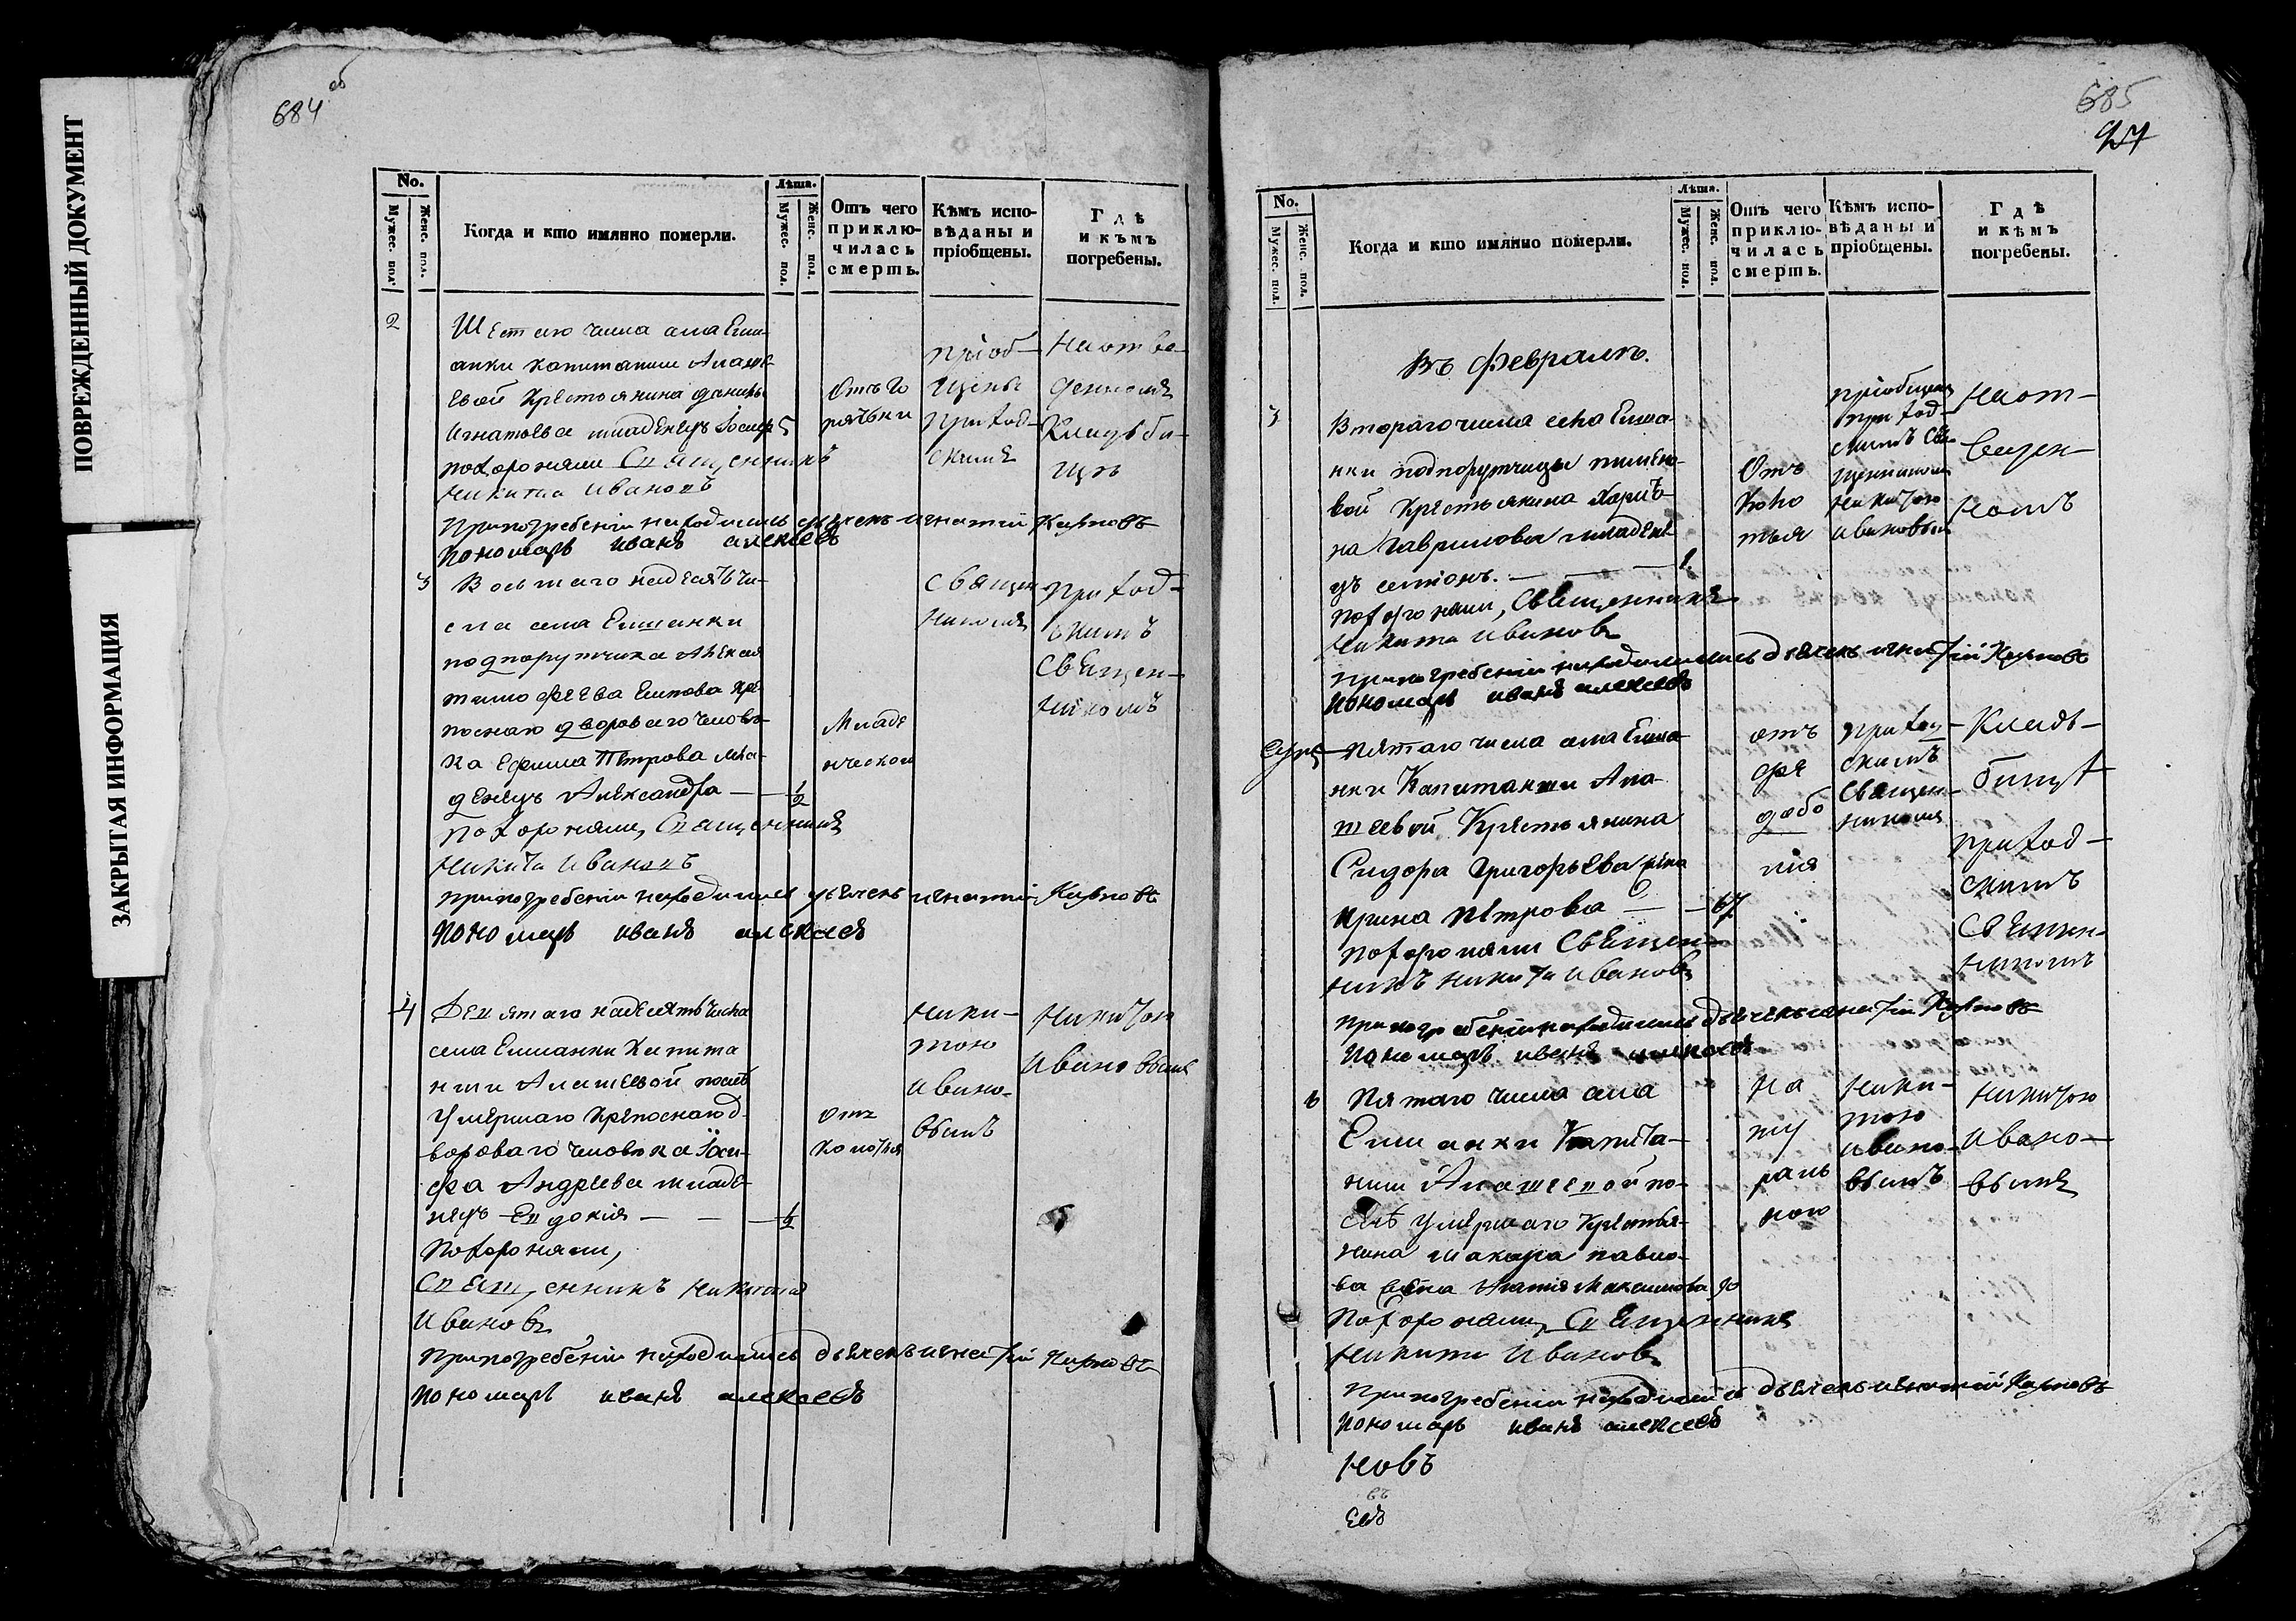 ПОВРЕЖДЕННЫЙ ДОКУМЕНТ
ЗАКРЫТАЯ ИНФОРМАЦИЯ
684 об
No.
Мужес. пол.
Женс. пол.
Когда и кто имянно померли.
Лѣта.
Мужес. пол.
Женс. пол.
Отъ чего приклю-
чилась
смерть.
Кѣмъ испо-
вѣданы и
пріобщены.
Гдѣ
и кѣмъ
погребены.
2
Шестаго числа села Елша-
анки капитанши Алаше-
евой крестьянина данилы
Игнатьева младенецъ Іосифъ 5
похоронями Священникъ
Никита Ивановъ
При погребеніи находились дьячекъ игнатій Карповъ
Пономарь иванъ алексеевъ
Отъ го
рячьки
пріоб-
щены
приход-
скимъ
На отве-
денномъ
Кладьби-
щѣ
3
Восьмаго надесять чи-
сла села Елшанки
подпорутчика Алексея
тимофеева Елитова кре-
поснаго дворового челове-
ка Ефима Петрова мла-
денецъ Александра — 1/2
Похоронями, Священникъ
Никита Ивановъ
При погребеніи находились дьячекъ игнатій Карповъ
Пономарь иванъ алексеевъ
Младе
нческой
Священ
никомъ
приход-
скимъ
Священ-
никомъ
4
Девятаго надесять числа
села Елшанки Капита
нши Алашеевой после
умершаго крепоснаго д-
ворового человека Іоси-
фа Андреева младе-
нецъ Евдокія — — 1/2
Похоронями,
Священникъ Никита
Ивановъ
При погребеніи находились дьячекъ игнатій Карповъ
Пономарь иванъ алексеевъ
отъ
колотья
Ники-
тою
Ивано-
вымъ
Никитою
Ивановымъ
685
No.
Мужес. пол.
Женс. пол.
Когда и кто имянно померли.
Лѣта.
Мужес. пол.
Женс. пол.
Отъ чего
приклю-
чилась
смерть.
Кѣмъ испо-
вѣданы и
пріобщены.
Гдѣ
и кѣмъ
погребены.
Въ Февралѣ.
3
Втораго числа села Елша-
нки подпорутчицы пимено-
вой Крестьянина Харито-
на Гаврилова младене-
цъ семіонъ. — — 1
Похоронями, Священникъ
Никита Ивановъ
При погребеніи находились дьячекъ игнатій Карповъ
Пономарь иванъ алексеевъ
Отъ
Коло
тья
пріобщенъ
приход-
скимъ Свя-
щенникомъ
Никитою
Ивановымъ
На от-
веден-
номъ
Пятаго числа села Елша-
нки Капитанши Ала-
шеевой Крестьянина
Сидора Григорьева жена
Ирина Петрова — — 67
Похоронями Священ-
никъ Никита Ивановъ
При погребеніи находились дьячекъ игнатій Карповъ
Пономарь иванъ алексеевъ
приход-
скимъ
Священ-
никомъ
Кладь-
бищѣ
приход-
скимъ
Священ-
никомъ
6
Пятаго числа села
Елшанки Капита-
нши Алашеевой по-
сле умершаго Крестья-
нина макара павло-
ва жена Агафія Максимова 90
Похоронями, Священникъ
Никита Ивановъ
При погребеніи находились дьячекъ игнатій Карповъ
Пономарь иванъ алексеевъ
На
ту
раль
ною
Ники-
тою
Ивано-
вымъ
Никитою
Ивано-
вымъ
новъ
евъ